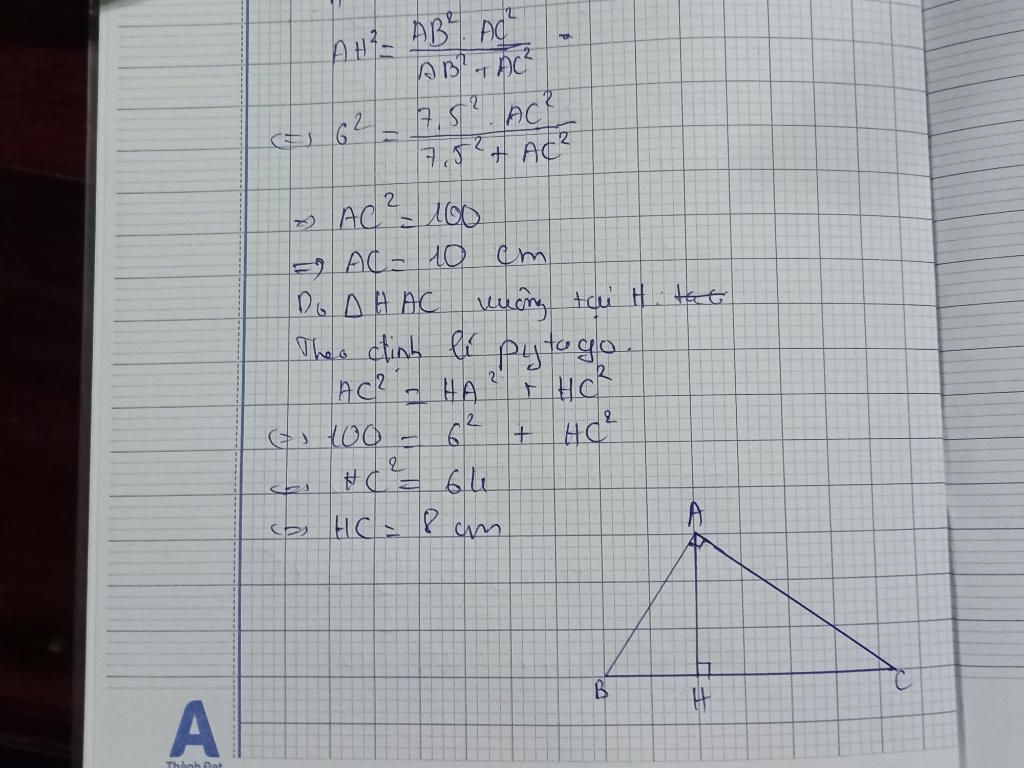 AH² = AB² . AC² / AB² + AC²
<=> 6² = 7,5² . AC² / 7,5² + AC²
=> AC² = 100
=> AC = 10 cm
Do Δ HAC vuông tại H.
Theo định lí pytago.
AC² = HA² + HC²
<=> 100 = 6² + HC²
<=> HC² = 64
<=> HC = 8 cm
A
B
H
C
A
Thành Đạt